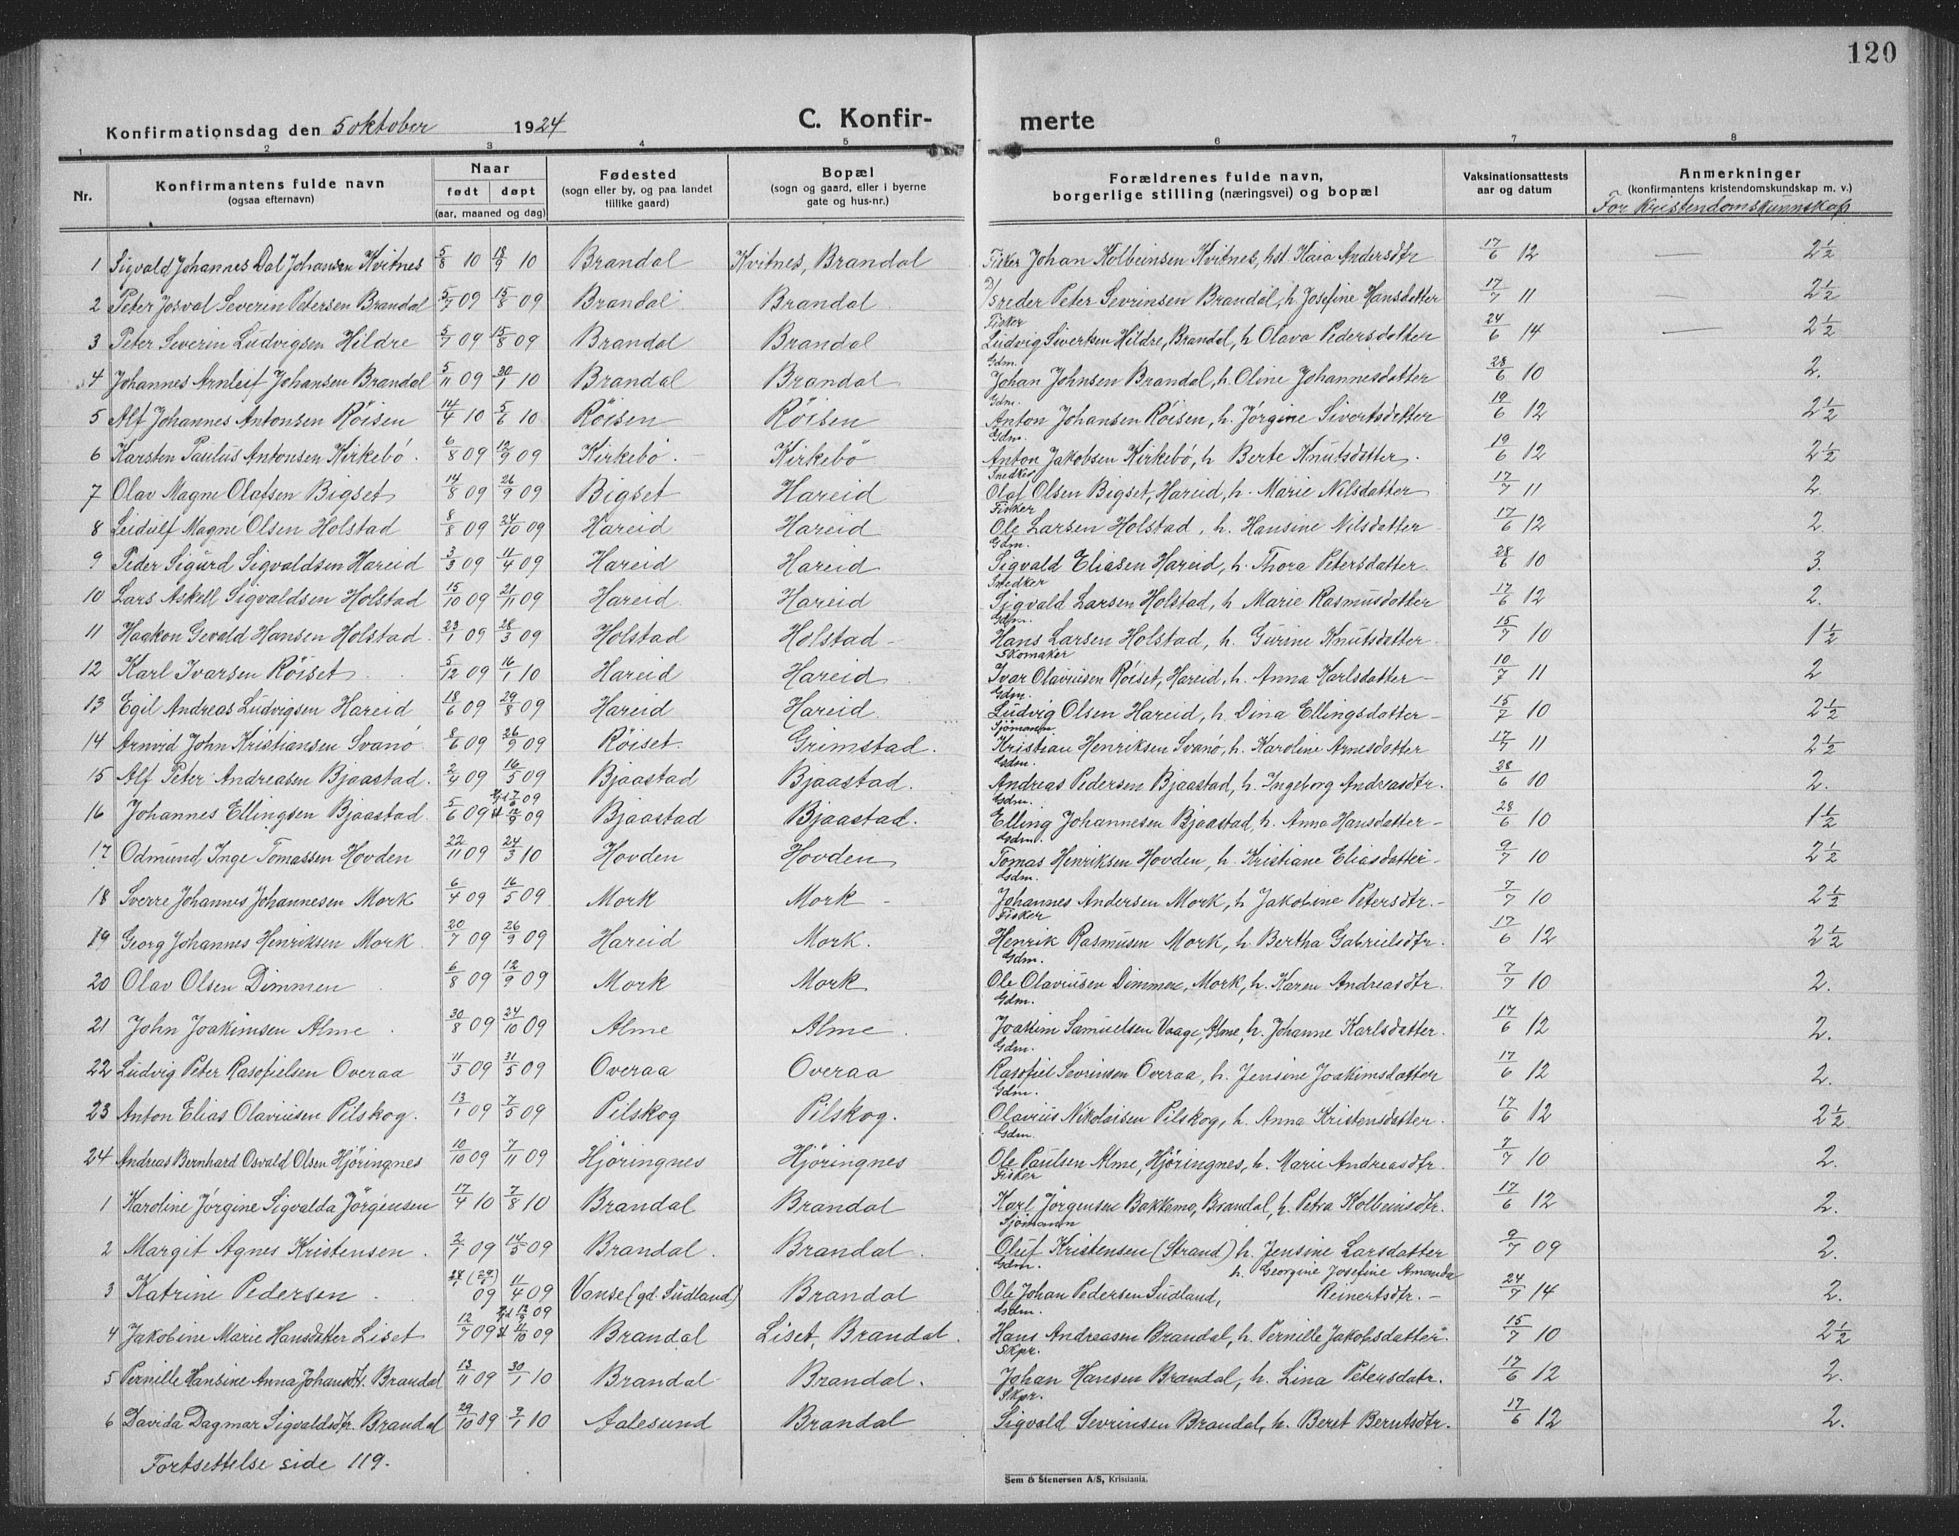 120
Konfirmationsdag den 5 oktober 1924 C. Konfir- merte
1 2 3 4 5 6 7 8
Nr. Konfirmantens fulde navn (ogsaa efternavn) Naar født døpt (aar, maaned og dag) Fødested (sogn eller by, og paa landet tillike gaard) Bopæl (sogn og gaard, eller i byerne gate og hus-nr.) Forældrenes fulde navn, borgerlige stilling (næringsvei) og bopæl Vaksinationsattests aar og datum Anmerkninger (konfirmantens kristendomskundskap m. v.)
For kristendomskunnskap
1 Sigvald Johannes Dal Johansen Kvitnes 5/8 10 18/9 10 Brandal Kvitnes, Brandal Fisker Johan Kolbeinsen Kvitnes, hst. Kaia Andersdtr 17/6 12 — 2 1/2
2 Peter Josval Severin Petersen Brandal 5/7 09 15/8 09 Brandal Brandal Peter Sevrinsen Brandal, h. Josefine Hansdatter 17/7 11 — 2 1/2
3 Peter Severin Ludvigsen Hildre 5/7 09 15/8 09 Brandal Brandal Fisker Ludvig Sivertsen Hildre, Brandal, h Olava Pedersdatter 24/6 14 — 2 1/2
4 Johannes Arnleif Johansen Brandal 5/11 09 30/1 10 Brandal Brandal Gdm. Johan Johnsen Brandal, h. Oline Johannesdatter 28/6 10 2.
5 Alf Johannes Antonsen Röisen 14/4 10 5/6 10 Röisen Röisen Gdm. Anton Johansen Röisen, h. Jörgine Sivertsdatter 19/6 12 2 1/2
6 Karsten Paulus Antonsen Kirkebö. 6/8 09 12/9 09 Kirkebö. Kirkebö Gdm. Anton Jakobsen Kirkebö, h Berte Knutsdatter. 19/6 12 2 1/2
7 Olav Magne Olafsen Bigset 14/8 09 26/9 09 Bigset Hareid Snedker Olaf Olsen Bigset, Hareid, h. Marie Nilsdatter 17/7 11 2.
8 Leidulf Magne Olsen Holstad 8/8 09 24/10 09 Hareid Hareid Fisker Ole Larsen Holstad, h. Hansine Nilsdatter 17/6 12 2.
9 Peder Sigurd Sigvaldsen Hareid 3/3 09 11/4 09 Hareid Hareid Gdm. Sigvald Eliasen Hareid, h. Thora Petersdatter. 28/6 10 3.
10 Lars Askell Sigvaldsen Holstad 15/10 09 21/11 09 Hareid Hareid Snedker Sigvald Larsen Holstad, h Marie Rasmusdatter 17/6 12 2.
11 Haakon Gevald Hansen Holstad 23/1 09 28/3 09 Holstad Holstad Gdm. Hans Larsen Holstad, h. Gurine Knutsdatter 15/7 10 1 1/2
12 Karl Ivarsen Röiset 5/12 09 16/1 10 Hareid Hareid Skomaker Ivar Olaviusen Röiset, Hareid, h. Anna Karlsdatter 10/7 11 2
13 Egil Andreas Ludvigsen Hareid 18/6 09 29/8 09 Hareid Hareid. Gdm. Ludvig Olsen Hareid, h. Dina Ellingsdatter 15/7 10 2 1/2
14 Arnvid John Kristiansen Svanö 8/6 09 26/9 09 Röiset. Grimstad. Sjömann Kristian Henriksen Svanö, h. Karoline Arnesdatter 17/7 11 2 1/2
15 Alf Peter Andreasen Bjaastad. 2/4 09 16/5 09 Bjaastad Bjaastad. Gdm. Andreas Pedersen Bjaastad, h. Ingeborg Andreasdtr. 28/6 10 2.
16 Johannes Ellingsen Bjaastad. 5/6 09 7/6 09 12/9 09 Bjaastad Bjaastad. Gdm. Elling Johannesen Bjaastad, h. Anna Hansdatter 28/6 10 1 1/2
17 Odmund Inge Tomassen Hovden 22/11 09 24/3 10 Hovden Hovden Gdm. Tomas Henriksen Hovden, h. Kristiane Eliasdatter 9/7 10 2 1/2
18 Sverre Johannes Johannesen Mork 6/4 09 16/5 09 Mork Mork Gdm. Johannes Andersen Mork, h Jakobine Petersdtr. 7/7 10 2 1/2
19 Georg Johannes Henriksen Mork 20/7 09 26/9 09 Hareid Mork. Fisker Henrik Rasmusen Mork, h. Bertha Gabrielsdtr. 17/6 12 2 1/2
20 Olav Olsen Dimmen 6/8 09 12/9 09 Mork Mork Gdm. Ole Olaviusen Dimmen, Mork, h. Karen Andreasdtr. 7/7 10 2.
21 John Joakimsen Alme 30/8 09 24/10 09 Alme Alme Gdm. Joakim Samuelsen Vaage, Alme, h. Johanne Karlsdatter. 17/6 12 2.
22 Ludvig Peter Rasofielsen Overaa 11/3 09 31/5 09 Overaa Overaa Gdm. Rasofiel Sevrinsen Overaa, h. Jensine Joakimsdatter 17/6 12 2.
23 Anton Elias Olaviusen Pilskog. 13/1 09 7/5 09 Pilskog Pilskog. Gdm. Olavius Nikolaisen Pilskog, h. Anna Kristensdatter. 17/6 12 2 1/2
24 Andreas Bernhard Osvald Olsen Hjöringnes 10/10 09 7/11 09 Hjöringnes Hjöringnes Gdm. Ole Paulsen Alme, Hjöringnes, h. Marie Andreasdtr. 7/7 10 2.
1 Karoline Jörgine Sigvalda Jörgensen 17/4 10 7/8 10 Brandal Brandal Fisker Karl Jörgensen Bakkemo, Brandal, h. Petra Kolbeinsdtr. 17/6 12 2.
2 Margit Agnes Kristensen. 2/1 09 14/5 09 Brandal. Brandal Sjömann Oluf Kristensen (Strand) h. Jensine Larsdatter 9/7 09 2.
3 Katrine Pedersen 09 11/4 09 Vanse (gd. Sudland) Brandal Gdm. Ole Johan Pedersen Sudland, h. Georgine Josefine Amanda Reinertsdtr. 24/7 14 2.
4 Jakobine Marie Hansdatter Liset 12/7 09 12/9 09 11/10 09 Brandal Liset, Brandal. Gdm. Hans Andreasen Brandal, h. Pernille Jakobsdatter 15/7 10 2 1/2
5 Pernille Hansine Anna Johansdtr. Brandal 13/11 09 30/1 10 Brandal Brandal. Skpr. Johan Hansen Brandal, h. Lina Petersdatr. 17/6 12 2.
6 Davida Dagmar Sigvaldsdtr. Brandal 29/10 09 9/1 10 Aalesund Brandal Skpr. Sigvald Sevrinsen Brandal, h. Beret Berntsdtr. 17/6 12 2.
Fortsettelse side 119.
Sem & Stenersen A/S, Kristiania.